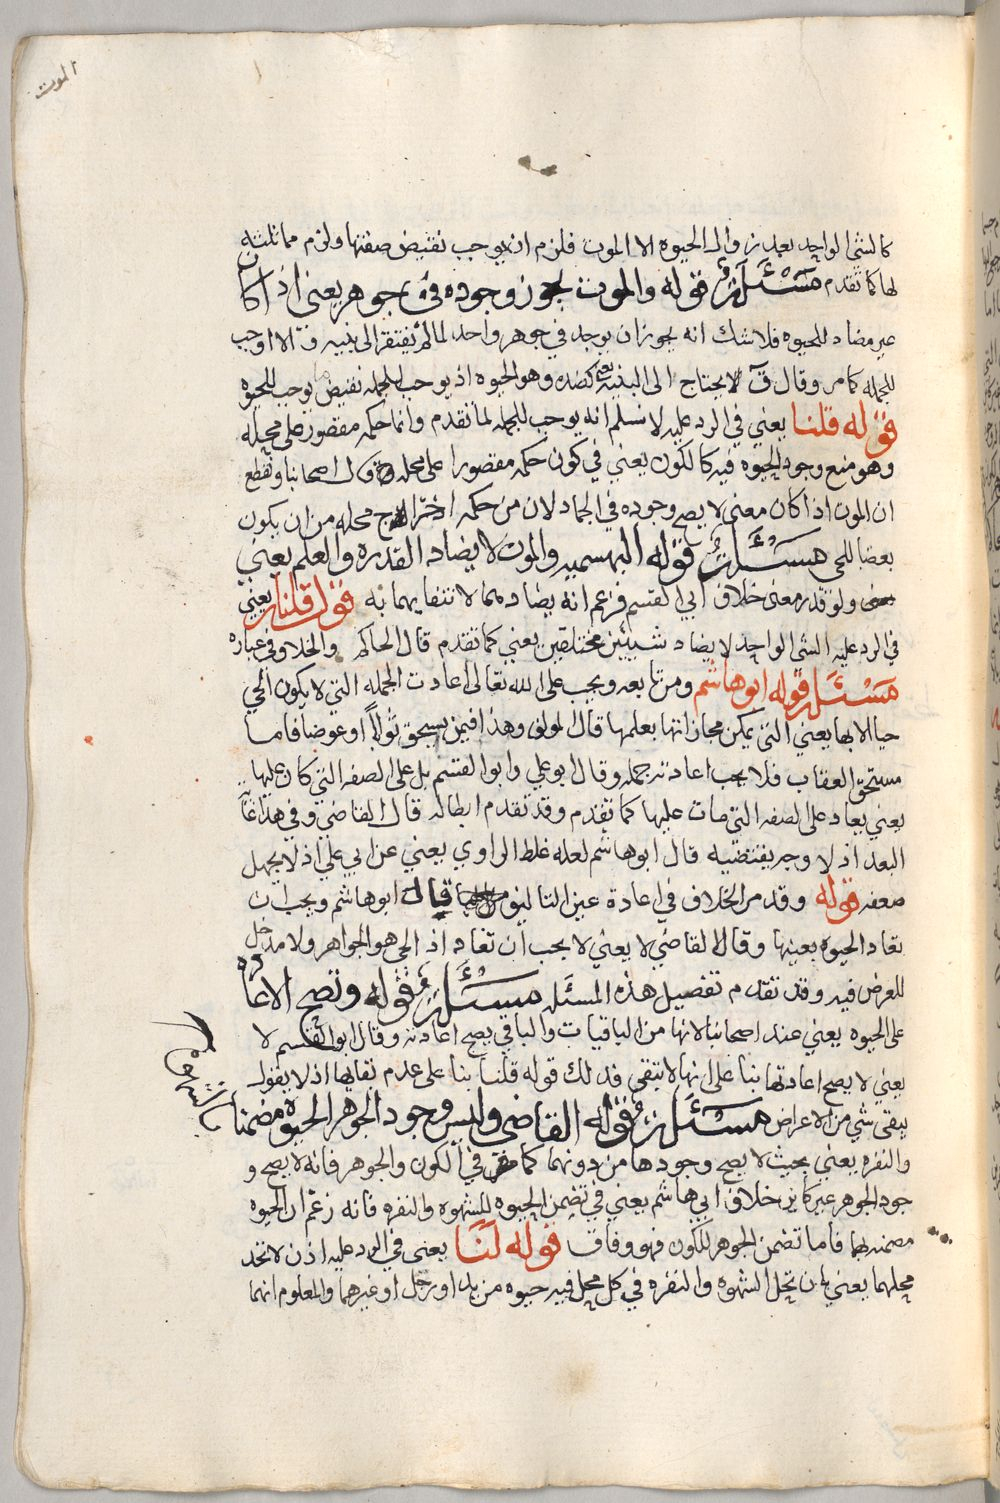 الموت
كالشي الواحد بعد زوال الحيوه الا الموت فلزم ان يوجب نقيض صفتها ولزم مماثلته
لها كما تقدم مسئلة قوله والموت يجوز وجوده في جوهر يعني اذا كان
غير مضاد للحيوه فلا شك انه يجوز ان يوجد في جوهر واحد لما لم يفتقر الى بنيه والا اوجب
للجمله كما مر وقال ق لا يحتاج الى البنيه كضده وهو الحيوه اذ يوجب للجمله نقيض ما يوجب للحيوه
قوله قلنا يعني في الرد عليه لا نسلم انه يوجب للجمله لما تقدم وانما حكمه مقصور على محله
وهو منع وجود الحيوه فيه كالكون يعني في كون حكمه مقصورا على محله وقال اصحابنا ونقطع
ان الموت اذا كان معنى لا يصح وجوده في الجماد لان من حكمه اخراج محله من ان يكون
بعضا للحي مسئلة قوله البهشميه والموت لا يضاد القدره والعلم يعني
ولو قدر معنى خلاف ابي القسم فزعم انه يضادهما لانتفايهما به قوله قلنا يعني
في الرد عليه الشي الواحد لا يضاد شيئين مختلفين يعني كما تقدم قال الحاكم والخلاف في عباره
مسئلة قوله ابو هاشم ومن تابعه ويجب على الله تعالى اعادت الجمله التي لا يكون الحي
حيا الا بها يعني التي يمكن مجازاتها بعلمها قال المولف وهذا فيمن يستحق ثوابا او عوضا فاما
مستحق العقاب فلا يجب اعادته جمله وقال ابو علي وابو القسم بل على الصفه التي كان عليها
يعني يعاد على الصفه التي مات عليها كما تقدم وقد تقدم ابطاله قال القاضي وفي هذا غايه
البعد اذ لا وجه يقتضيه قال ابو هاشم لعله غلط الراوي يعني عن ابي علي اذ لا يجهل
ضعفه قوله وقد مر الخلاف في اعادة عين التاليف قال ابو هاشم ويجب ان
تعاد الحيوه بعينها وقال القاضي لا يعني لا يجب ان تعاد اذ الحي هو الجواهر ولا مدخل
للعرض فيه وقد تقدم تفصيل هذه المسئله مسئلة قوله وتصح الاعاده
على الحيوه يعني عند اصحابنا لانها من الباقيات والباقي يصح اعادته وقال ابو القسم لا
يعني لا يصح اعادتها بنا على انها لا تبقى فذلك قوله قلنا بنا على عدم بقايها اذ لا يقول
ببقى شي من الاعراض مسئلة قوله القاضي وليس وجود الجوهر الحيوة مضمنا بالشهوة
والنفره يعني بحيث لا يصح وجودها من دونهما كما مر في الكون والجوهر فانه لا يصح و
جود الجوهر غير كاين خلاف ابي هاشم يعني في تضمن الحيوه للشهوه والنفره فانه زعم ان الحيوه
مضمنه لهما فاما تضمن الجوهر للكون فهو وفاق قوله لنا يعني في الرد عليه اذن لاتحد
محلهما يعني بان تحل الشهوه والنفره في كل محل فيه حيوه من يد او رجل او غيرهما والمعلوم انهما